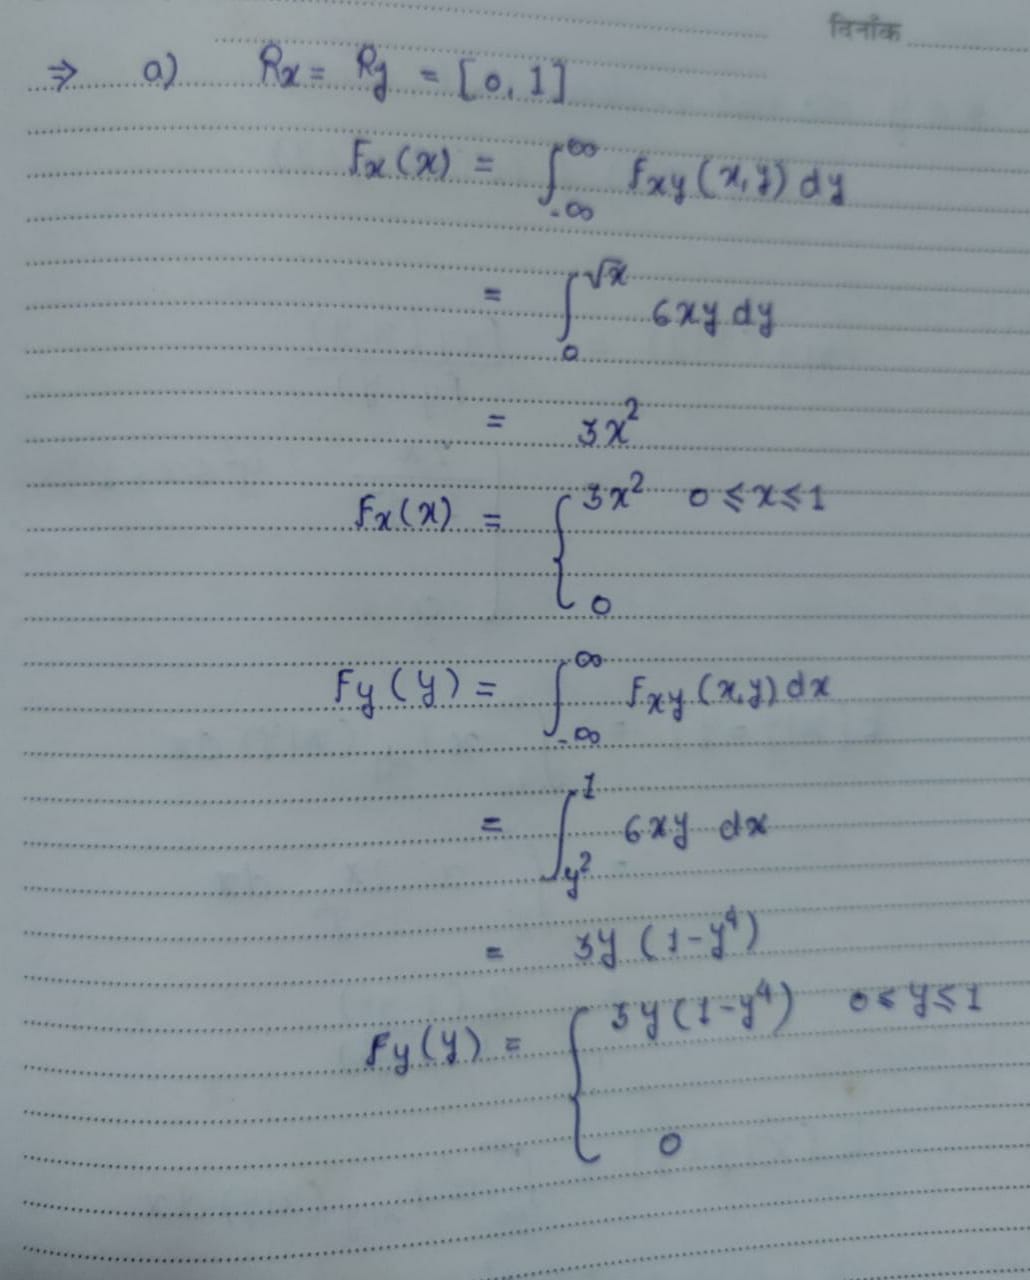 दिनाँक
⇒ a) Rx = Ry = [0, 1]
Fx(x) = ∫_{-∞}^{∞} fxy (x,y) dy
= ∫_{0}^{√x} 6xy dy
= 3x²
Fx(x) = { 3x² 0 ≤ x ≤ 1
0
Fy(y) = ∫_{-∞}^{∞} Fxy (x,y) dx
= ∫_{y²}^{1} 6xy dx
= 3y (1-y⁴)
Fy(y) = { 3y(1-y⁴) 0 ≤ y ≤ 1
0